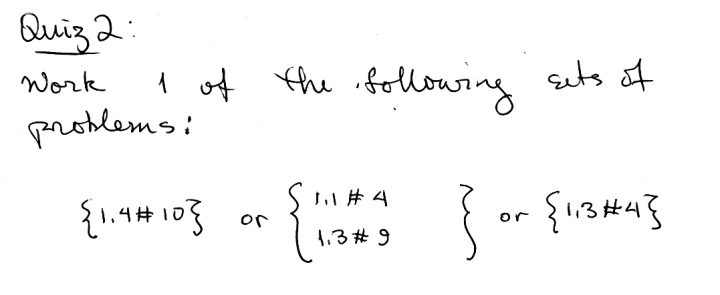 Quiz 2:
Work 1 of the following sets of
problems:
{1.4#10} or { 1.1 # 4
1.3 # 9 } or {1.3#4}